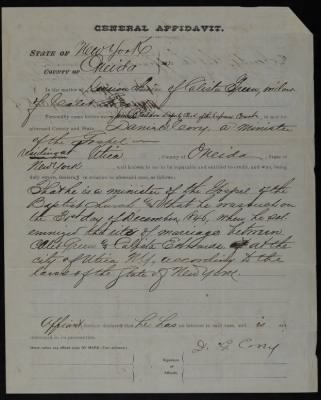 GENERAL AFFIDAVIT.
STATE OF New York
COUNTY OF Oneida
In the matter of Pension of Calista Green, widow
of
Personally came before me, Deputy Clerk of the Supreme Court
aforesaid County and State, Daniel G. Corey, a Minister
of the Gospel
residing at Utica, County of Oneida, State of
New York, well known to me to be reputable and entitled to credit, and who, being
duly sworn, in relation to aforesaid case, as follows:
That he is a minister of the Gospel of the
Baptist Church & that he was such on
the day of December, when he sol
emnized the rites of marriage between
Green & Calista at the
city of Utica N.Y. according to the
laws of the State of New York.
Affiant further declared that he has no interest in said case, and is not
concerned in its prosecution.
D. G. Corey
Signature of
Affiants.